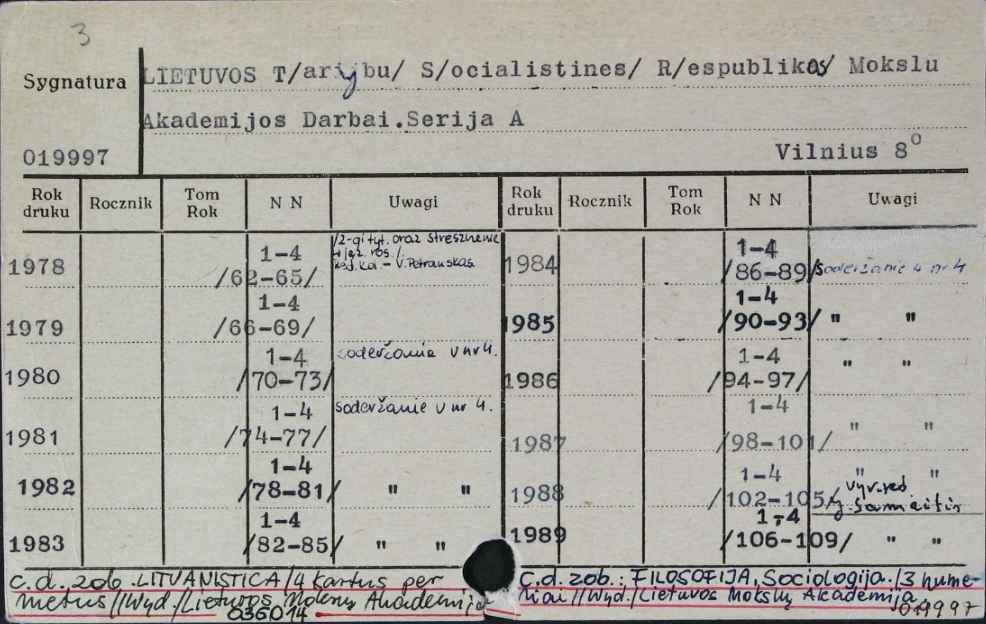 3
Sygnatura LIETUVOS T/arijbu/ S/ocialistines/ R/espublikos/ Mokslu
Akademijos Darbai.Serija A
019997 Vilnius 8°
Rok druku Rocznik Tom Rok N N Uwagi Rok druku Rocznik Tom Rok N N Uwagi
1978 1-4 /62-65/ /2-gi tyt. oraz streszczenie
w jęz. ros./
Red. - V. Petrauskas
1979 1-4 /66-69/
1980 1-4 /70-73/ soderžanie v nr 4.
1981 1-4 /74-77/ soderžanie v nr 4.
1982 1-4 /78-81/ " "
1983 1-4 /82-85/ " "
1984 1-4 /86-89/ soderžanie nr 4
1985 1-4 /90-93/ " "
1986 1-4 /94-97/ " "
1987 1-4 /98-101/ " "
1988 1-4 /102-105/ " "
vyr. red
1989 1-4 /106-109/ " "
c.d. zob. LITUANISTICA/4 kartus per
metus//Wyd./Lietuvos Mokslų Akademija
036014
C.d. zob.: FILOSOFIJA, Sociologija./3 nume-
riai//Wyd./Lietuvos Mokslų Akademija
019997